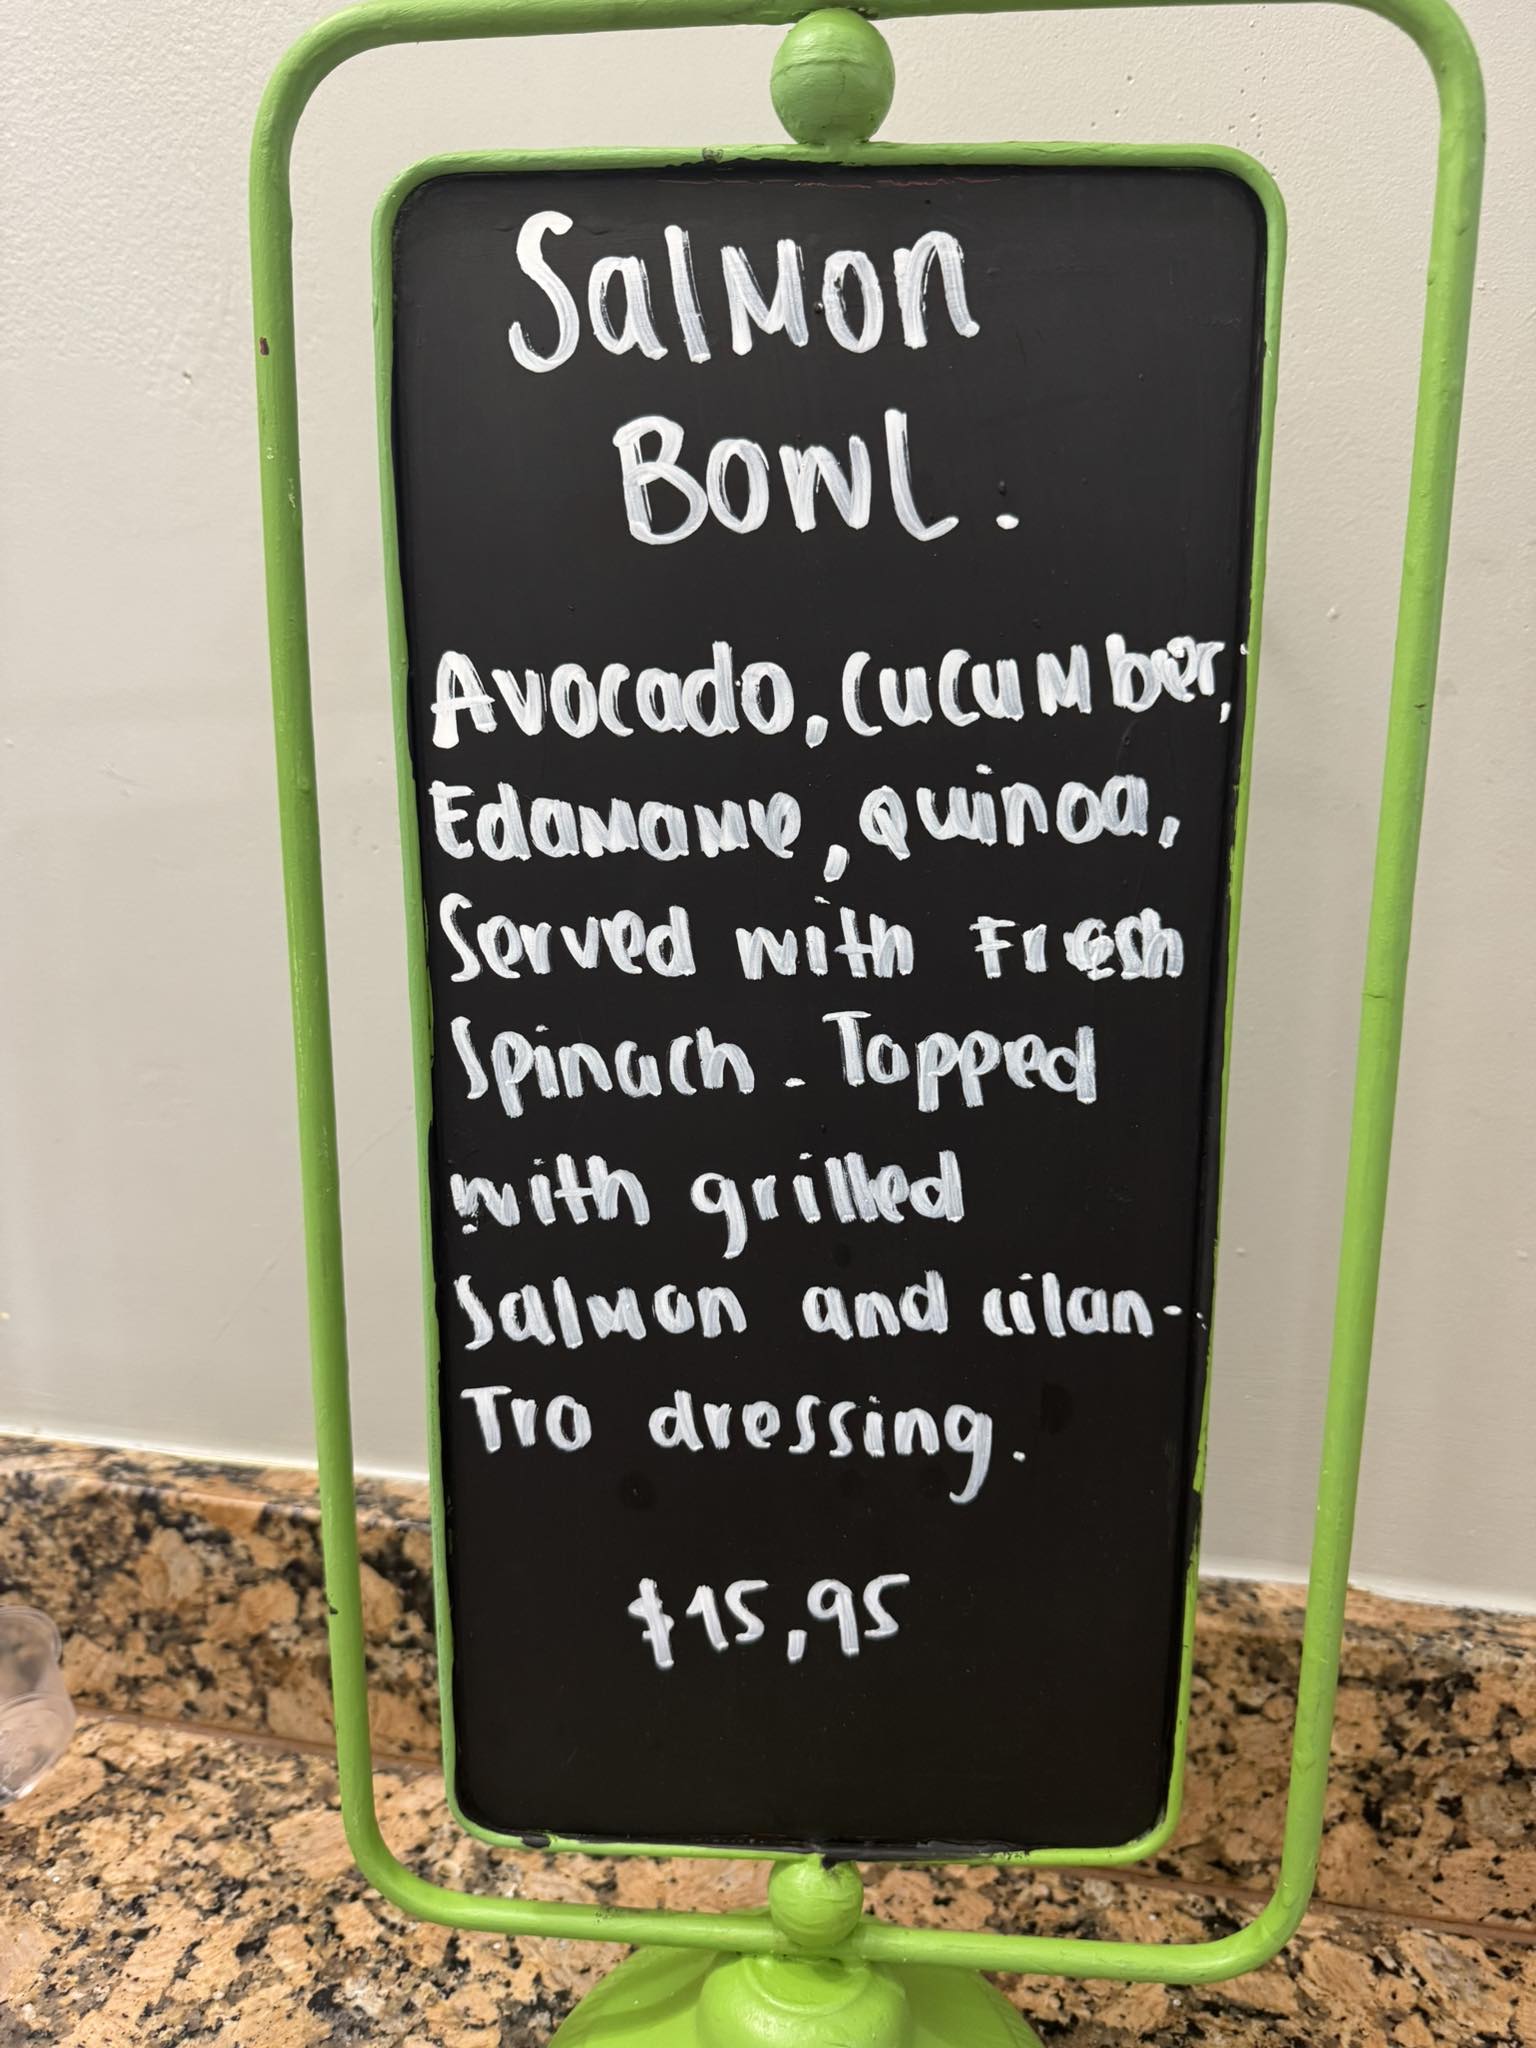 Salmon
Bowl.
Avocado, cucumber,
Edamame, quinoa,
Served with Fresh
Spinach. Topped
with grilled
Salmon and cilan-
Tro dressing.
$15,95